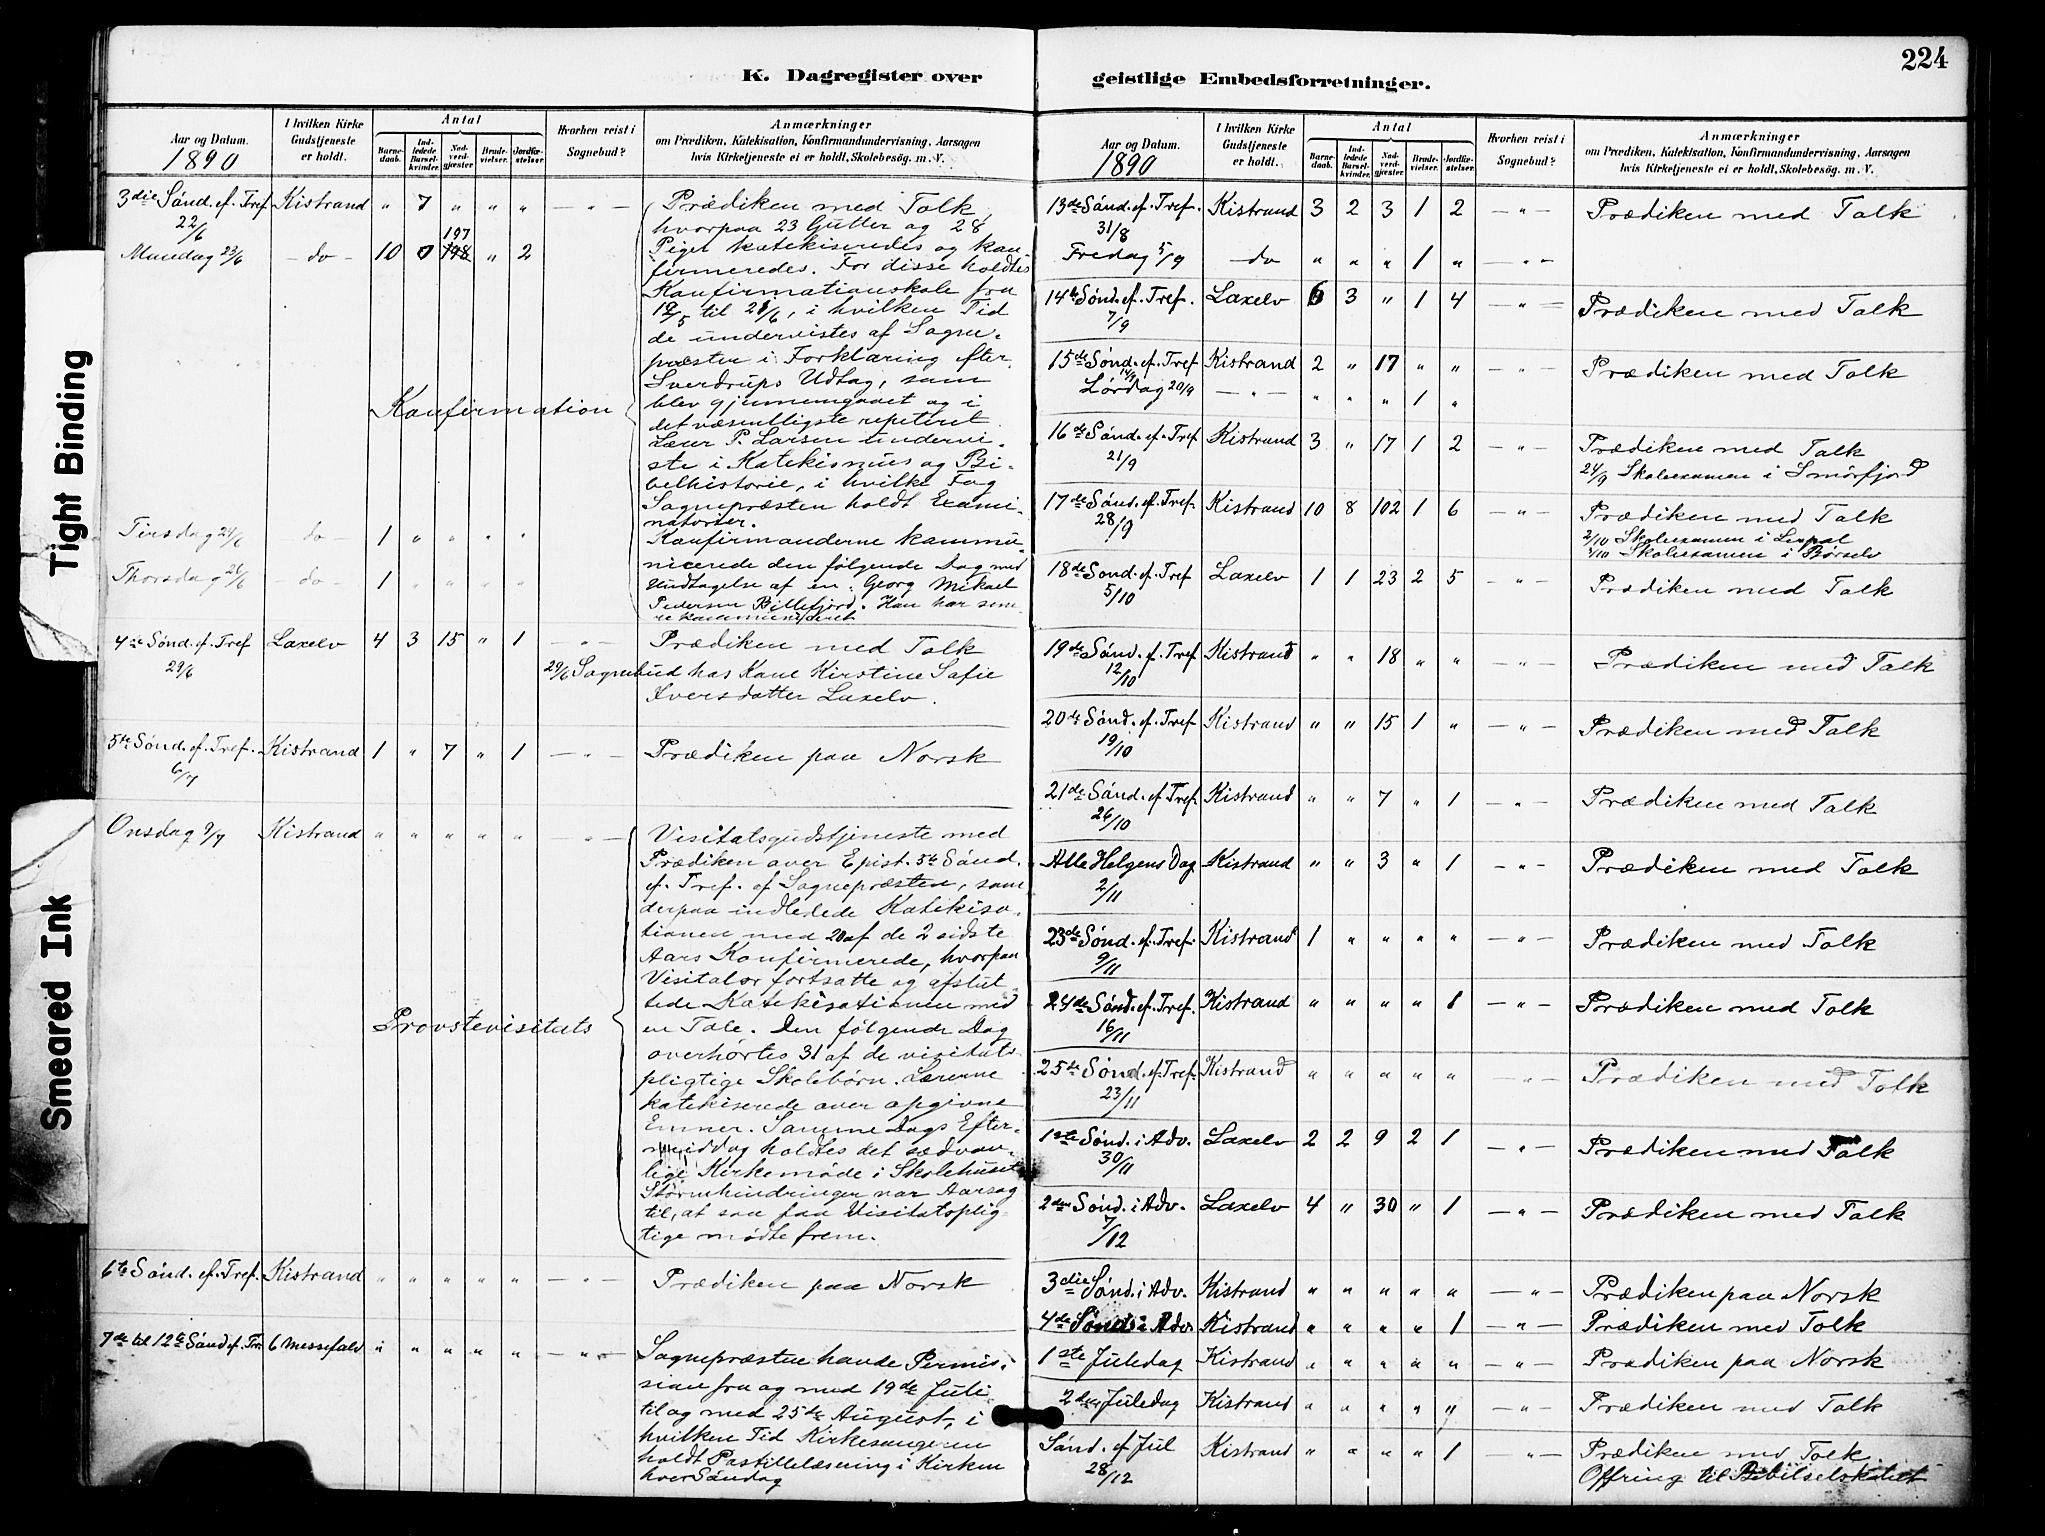 224
K. Dagregister over
geistlige Embedsforretninger.
Tight Binding
Smeared Ink
Aar og Datum. 1890
I hvilken Kirke Gudstjeneste er holdt.
Antal
Barnedaab. Indledede Barselkvinder. Nadvergjæster. Brudevielser. Jordfæstelser.
Hvorhen reist i Sognebud?
Anmærkninger
om Prædiken, Katekisation, Konfirmandundervisning, Aarsagen
hvis Kirketjeneste ei er holdt, Skolebesøg. m. V.
3die Sønd. ef. Tref 22/6 Kistrand " 7 " " " — " — Prædiken med Tolk,
hvorpaa 23 Gutter og 28
Mandag 23/6 — do — 10 0 197 198 " 2 Piger katekiseredes og kon-
firmeredes. For disse holdtes
Konfirmationskole fra
19/5 til 21/6, i hvilken Tid
de undervistes af Sogne-
præsten i Forklaring efter
Sverdrups Udtog, som
Konfirmation blev gjennemgaaet og i
det væsentligste repeteret.
Lærer P. Larsen undervi-
ste i Katekismus og Bi-
belhistorie, i hvilke Fag
Sognepræsten holdt Exami-
natorier.
Tirsdag 24/6 — do — 1 " " " " Konfirmanderne kommu-
nicerede den følgende Dag med
Thorsdag 26/6 — do — 1 " " " " Undtagelse af en: Georg Mikael
Pedersen Billefjord. Han har sene-
re kommuniceret
4de Sønd. ef. Tref 29/6 Laxelv 4 3 15 " 1 " Prædiken med Tolk
29/6 Sognebud hos Kone Kirstine Sofie
Iversdatter Laxelv.
5te Sønd. ef. Tref. 6/7 Kistrand 1 " 7 " 1 — " — Prædiken paa Norsk
Onsdag 9/7 Kistrand " " " " " " — Visitatsgudstjeneste med
Prædiken over Epist. 5te Sønd.
ef. Tref. af Sognepræsten, som
derpaa indledede Katekisa-
tionen med 20 af de 2 sidste
Aars Konfirmerede, hvorpaa
Visitator fortsatte og afslut-
tede Katekisationen med
Provstevisitats en Tale. Den følgende Dag
overhørtes 31 af de visitats-
pligtige Skolebørn. Lærerne
katekiserede over opgivne
Emner. Samme Dags Efter-
middag holdtes det sædvan-
lige Kirkemøde i Skolehuset
Stormhindringer var Aarsag
til, at saa faa Visitatsplig-
tige mødte frem.
6te Sønd. ef. Tref. Kistrand " " " " " — " — Prædiken paa Norsk
7de til 12te Sønd. ef. Tr. 6 Messefald " " " " " — " — Sognepræsten havde Permis-
sion fra og med 19de Juli
til og med 25de August, i
hvilken Tid Kirkesangeren
holdt Postillelæsning i Kirken
hver Søndag
Aar og Datum. 1890
I hvilken Kirke Gudstjeneste er holdt.
Antal
Barnedaab. Indledede Barselkvinder. Nadvergjæster. Brudevielser. Jordfæstelser.
Hvorhen reist i Sognebud?
Anmærkninger
om Prædiken, Katekisation, Konfirmandundervisning, Aarsagen
hvis Kirketjeneste ei er holdt, Skolebesøg. m. V.
13de Sønd. ef. Tref. 31/8 Kistrand 3 2 3 1 2 — " — Prædiken med Tolk
Fredag 5/9 — do " " " 1 " — " —
14de Sønd. ef. Tref. 7/9 Laxelv 6 3 " 1 4 — " — Prædiken med Tolk
15de Sønd. ef. Tref 14/9 Kistrand 2 " 17 " " — " — Prædiken med Tolk
Lørdag 20/9 — " — " " " 1 "
16de Sønd. ef. Tref 21/9 Kistrand 3 " 17 1 2 — " — Prædiken med Tolk
24/9 Skoleexamen i Smørfjord
17de Sønd. ef. Tref. 28/9 Kistrand 10 8 102 1 6 — " — Prædiken med Tolk
2/10 Skoleexamen i
Skoleexamen i Børselv
18de Sønd. ef. Tref 5/10 Laxelv 1 1 23 2 5 — " — Prædiken med Tolk
19de Sønd. ef. Tref 12/10 Kistrand " " 18 " " — " — Prædiken med Tolk
20de Sønd. ef. Tref 19/10 Kistrand " " 15 1 " — " — Prædiken med Tolk
21de Sønd. ef. Tref. 26/10 Kistrand " " 7 " 1 — " — Prædiken med Tolk
Alle Helgens Dag 2/11 Kistrand " " 3 " 1 — " — Prædiken med Tolk
23de Sønd. ef. Tref. 9/11 Kistrand 1 " " " " — " — Prædiken med Tolk
24de Sønd. ef. Tref. 16/11 Kistrand " " " " 1 — " — Prædiken med Tolk
25de Sønd. ef. Tref. 23/11 Kistrand " " " " " — " — Prædiken med Tolk
1ste Sønd. i Adv. 30/11 Laxelv 2 2 9 2 1 — " — Prædiken med Tolk
2den Sønd. i Adv. 7/12 Laxelv 4 " 30 " 1 — " — Prædiken med Tolk
3die Sønd. i Adv. Kistrand " " " " " — " — Prædiken paa Norsk
4de Sønd. i Adv. Kistrand " " " " 1 — " — Prædiken med Tolk
1ste Juledag Kistrand " " " " " — " — Prædiken paa Norsk
2den Juledag Kistrand " " " " " — " — Prædiken med Tolk
Sønd. ef Jul 28/12 Kistrand " " " " 1 " — Prædiken med Tolk.
Offring til Bibelselskabet